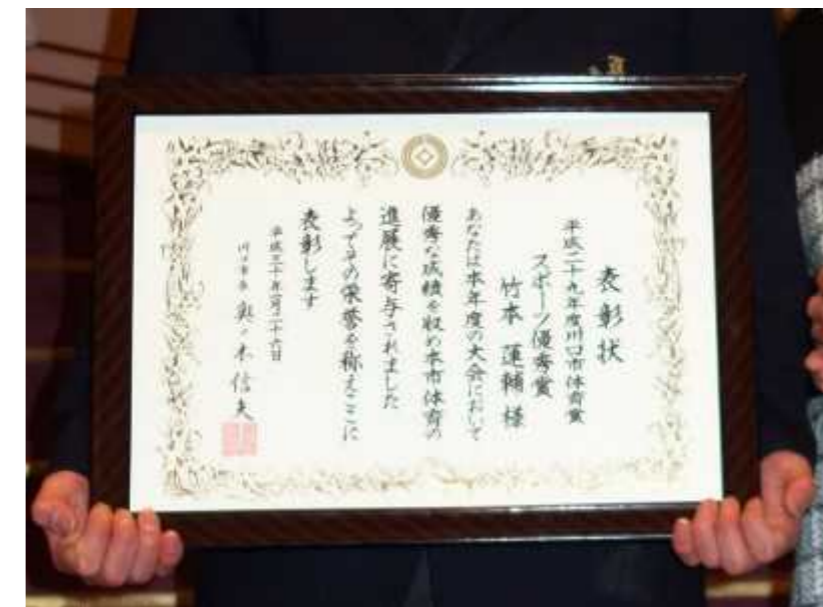 表彰状
平成二十九年度川口市体育賞
スポーツ優秀賞
竹本 蓮輔 様
あなたは本年度の大会において
優秀な成績を収め本市体育の
進展に寄与されました
よってその栄誉を称えここに
表彰します
平成三十年一月二十六日
川口市長 奥ノ木信夫